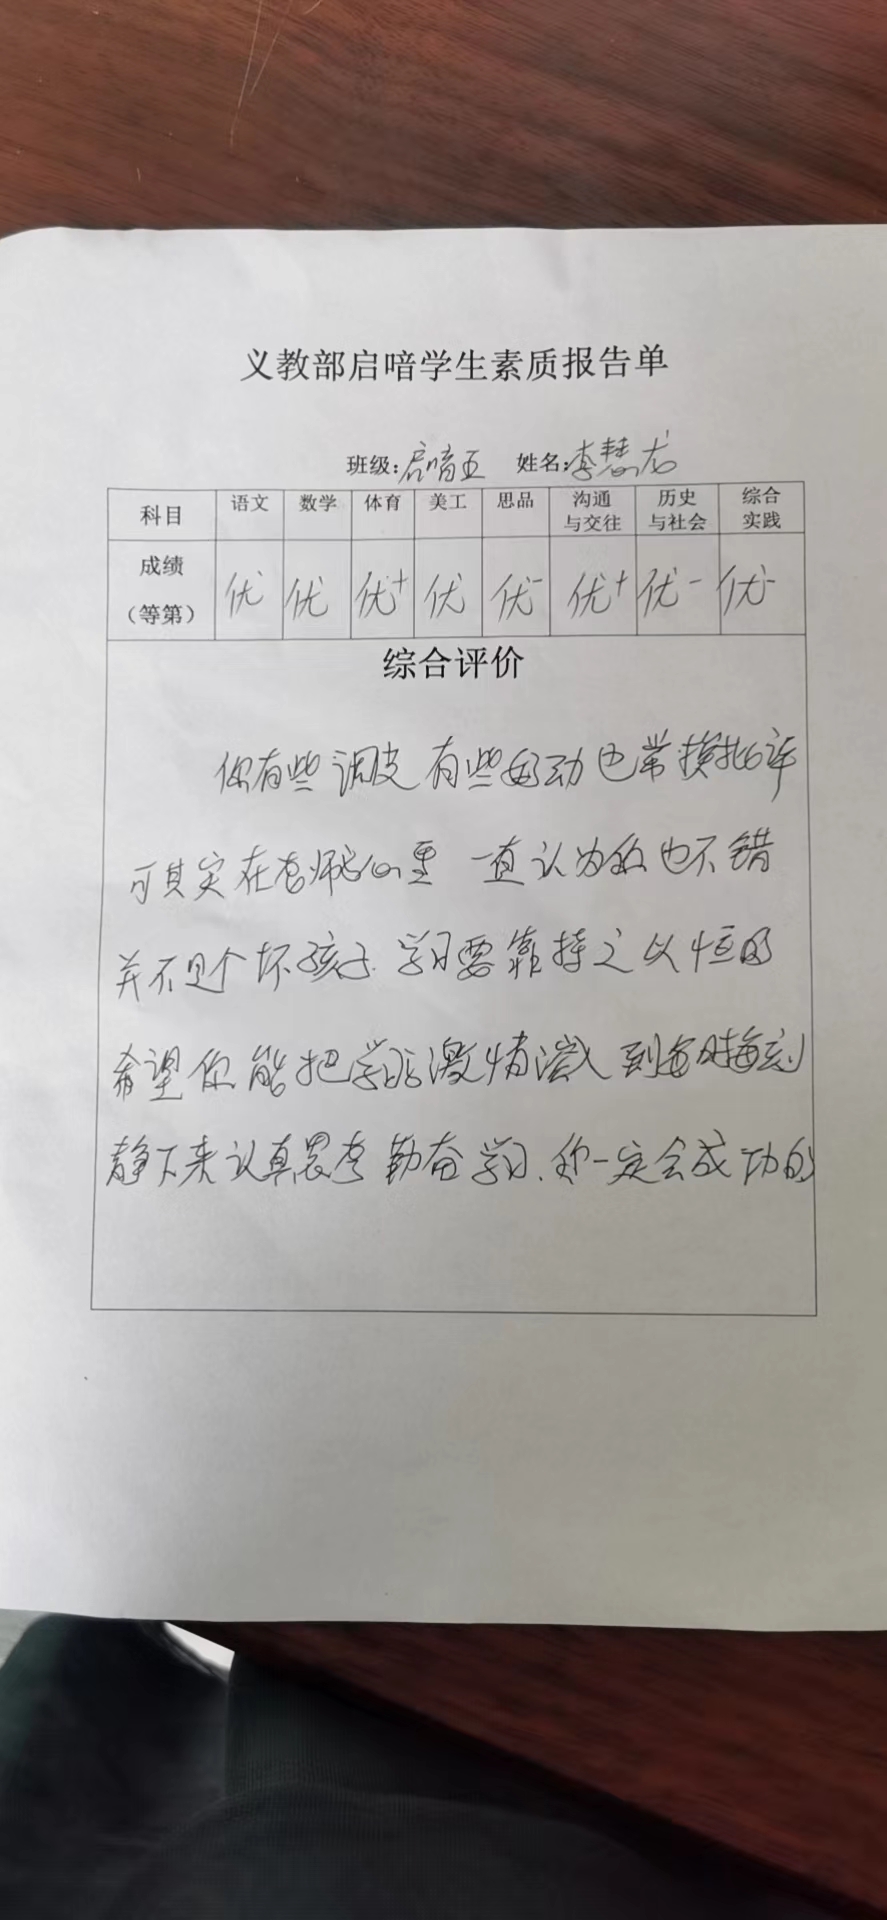 义教部启喑学生素质报告单
班级:启喑五 姓名:李慧龙
科目 语文 数学 体育 美工 思品 沟通与交往 历史与社会 综合实践
成绩(等第) 优 优 优+ 优 优- 优+ 优- 优-
综合评价
你有些调皮 有些好动 也常挨批评
可其实在老师心里 一直认为你也不错
并不是个坏孩子 学习要靠持之以恒的
希望你能把学习激情 到每时每刻
静下来认真思考 勤奋学习、你一定会成功的